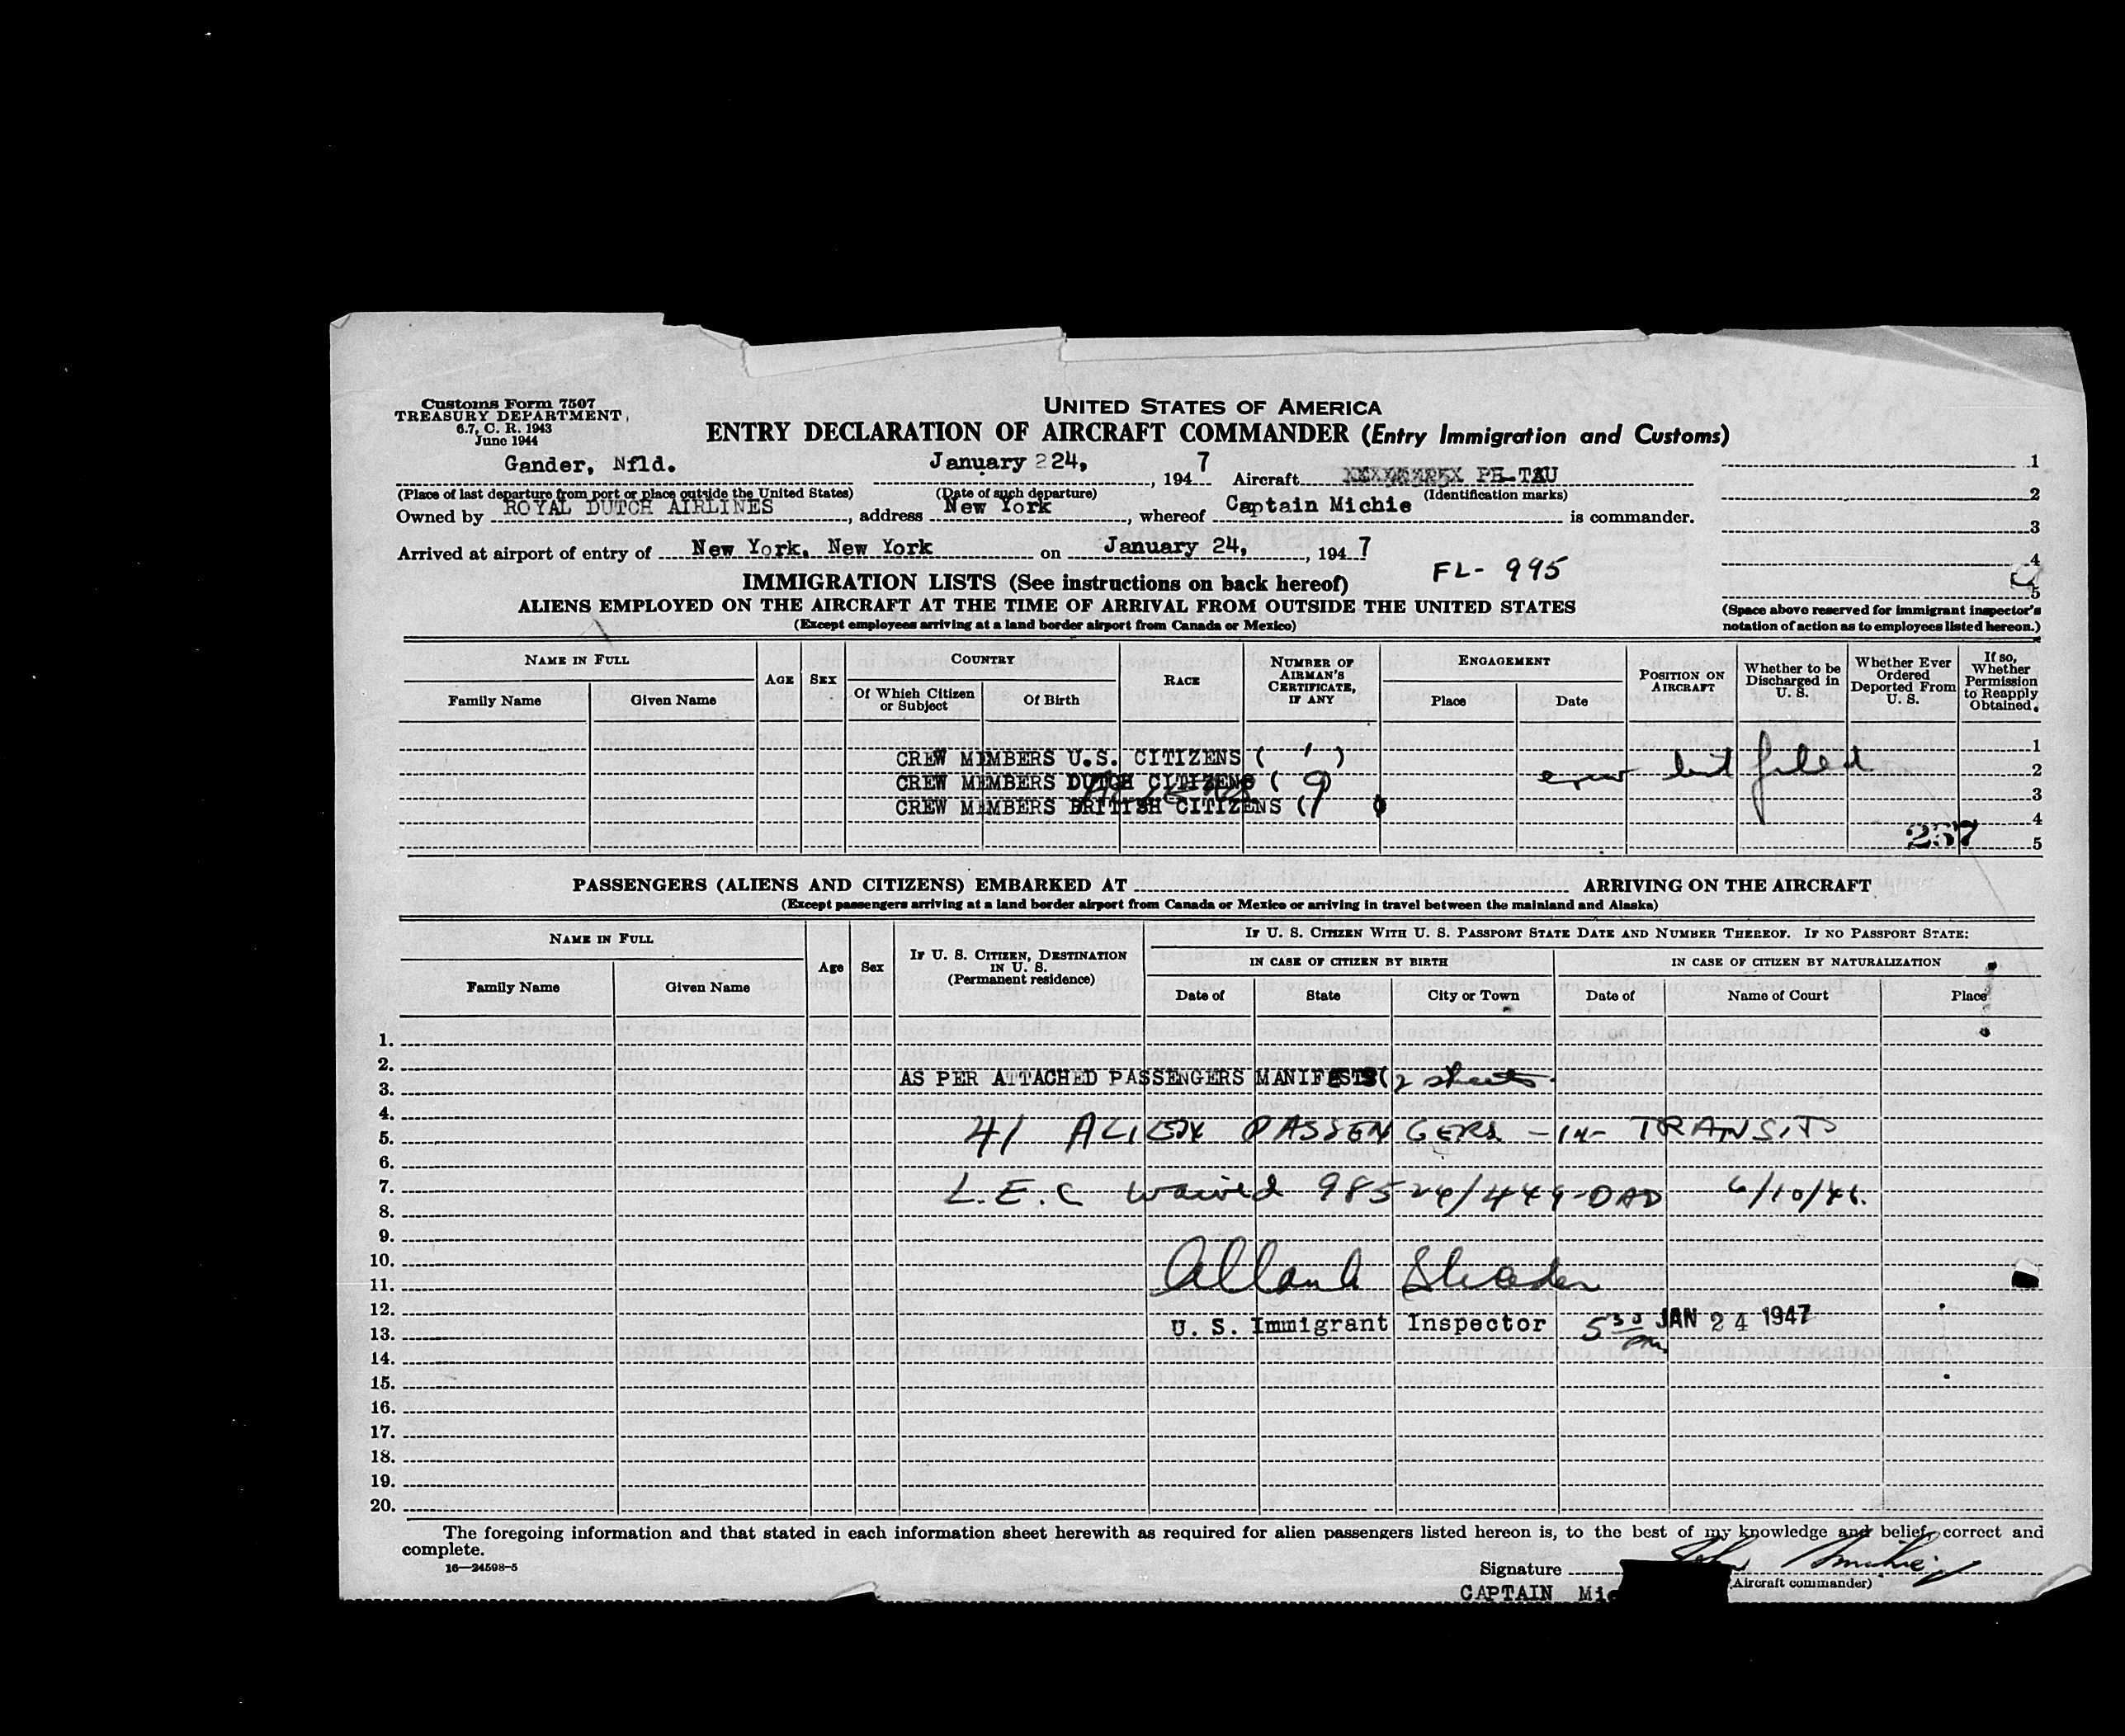 Customs Form 7507
TREASURY DEPARTMENT
6.7, C. R. 1943
June 1944
UNITED STATES OF AMERICA
ENTRY DECLARATION OF AIRCRAFT COMMANDER (Entry Immigration and Customs)
Gander, Nfld. January 24, , 194 7 Aircraft PH-TAU
(Place of last departure from port or place outside the United States) (Date of such departure) (Identification marks)
Owned by ROYAL DUTCH AIRLINES, address New York, whereof Captain Michie is commander.
Arrived at airport of entry of New York, New York on January 24, , 194 7
1
2
3
4
5
(Space above reserved for immigrant inspector's
notation of action as to employees listed hereon.)
FL- 995
IMMIGRATION LISTS (See instructions on back hereof)
ALIENS EMPLOYED ON THE AIRCRAFT AT THE TIME OF ARRIVAL FROM OUTSIDE THE UNITED STATES
(Except employees arriving at a land border airport from Canada or Mexico)
NAME IN FULL
Family Name Given Name
AGE SEX
COUNTRY
Of Which Citizen or Subject Of Birth
RACE
NUMBER OF AIRMAN'S CERTIFICATE, IF ANY
ENGAGEMENT
Place Date
POSITION ON AIRCRAFT
Whether to be Discharged in U. S.
Whether Ever Ordered Deported From U. S.
If so, Whether Permission to Reapply Obtained.
CREW MEMBERS U.S. CITIZENS ( 1 ) 1
CREW MEMBERS DUTCH CITIZENS ( 9) crew list filed 2
CREW MEMBERS BRITISH CITIZENS ( 3
4
257 5
PASSENGERS (ALIENS AND CITIZENS) EMBARKED AT ARRIVING ON THE AIRCRAFT
(Except passengers arriving at a land border airport from Canada or Mexico or arriving in travel between the mainland and Alaska)
NAME IN FULL
Family Name Given Name
Age Sex
IF U. S. CITIZEN, DESTINATION IN U. S. (Permanent residence)
IF U. S. CITIZEN WITH U. S. PASSPORT STATE DATE AND NUMBER THEREOF. IF NO PASSPORT STATE:
IN CASE OF CITIZEN BY BIRTH IN CASE OF CITIZEN BY NATURALIZATION
Date of State City or Town Date of Name of Court Place
1.
2.
3. AS PER ATTACHED PASSENGERS MANIFESTS (2 sheets
4.
5. 41 ALIEN PASSENGERS -IN- TRANSIT
6.
7. L.E.C waived 98524/449-DAD 6/10/46.
8.
9.
10.
11.
12.
13. U. S. Immigrant Inspector 5 30 pm JAN 24 1947
14.
15.
16.
17.
18.
19.
20.
The foregoing information and that stated in each information sheet herewith as required for alien passengers listed hereon is, to the best of my knowledge and belief, correct and
complete.
16—24598-5
Signature John Michie
(Aircraft commander)
CAPTAIN Mic